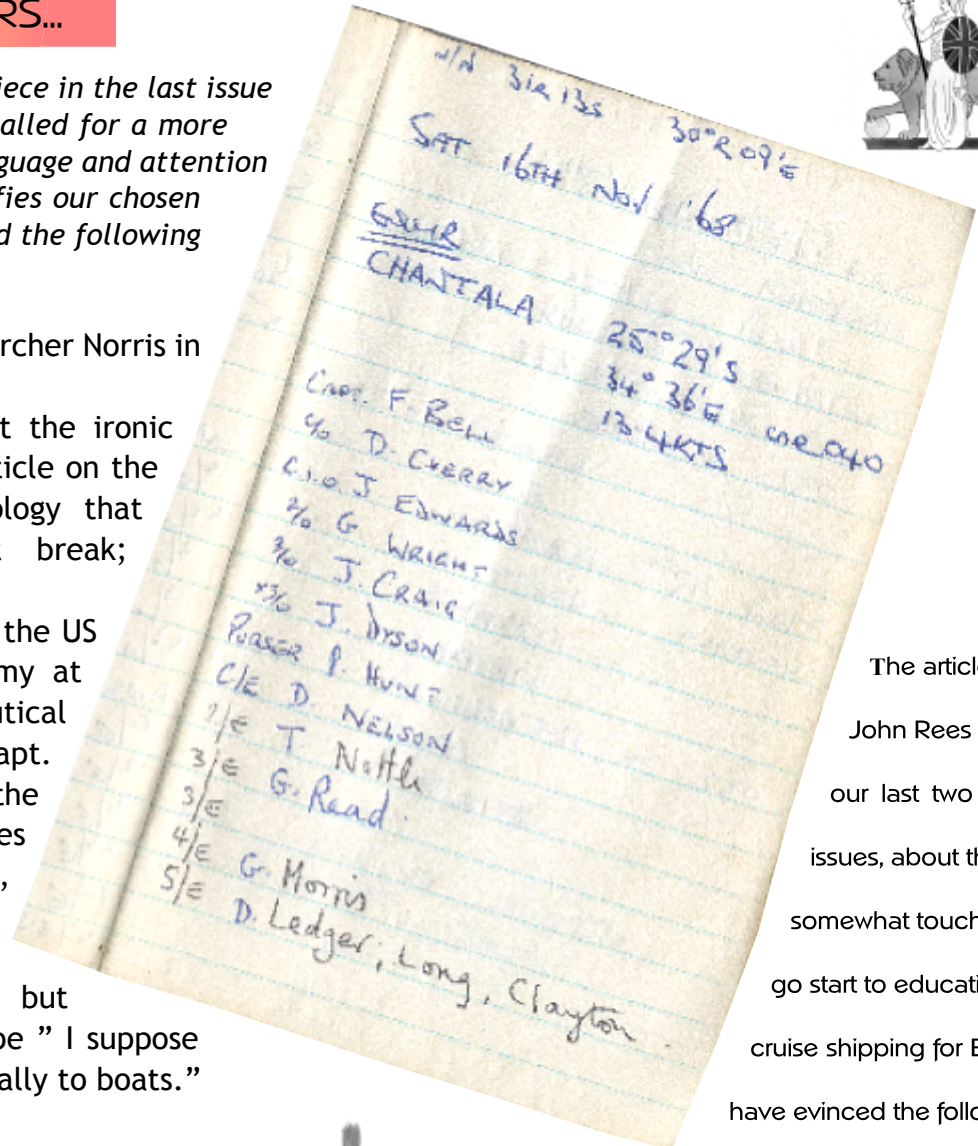 RS...
iece in the last issue
alled for a more
guage and attention
fies our chosen
d the following
rcher Norris in
t the ironic
ticle on the
ology that
break;
the US
my at
utical
apt.
the
es
,
but
be ” I suppose
ally to boats.”
N/N 31R 13s 30°R 09'E
SAT 16TH NOV '68
GSUR
CHANTALA
25° 29'S
34° 36'E
13.4KTS
040
Capt. F. BELL
C/O D. CHERRY
C.I.O. J EDWARDS
2/O G WRIGHT
3/O J. CRAIG
X3/O J. DYSON
PURSER P. HUNT
C/E D. NELSON
2/E T Nottle
3/E G. Read.
3/E
4/E G. Morris
5/E D. Ledger; Long, Clayton.
The article
John Rees
our last two
issues, about th
somewhat touch
go start to educati
cruise shipping for B
have evinced the follo